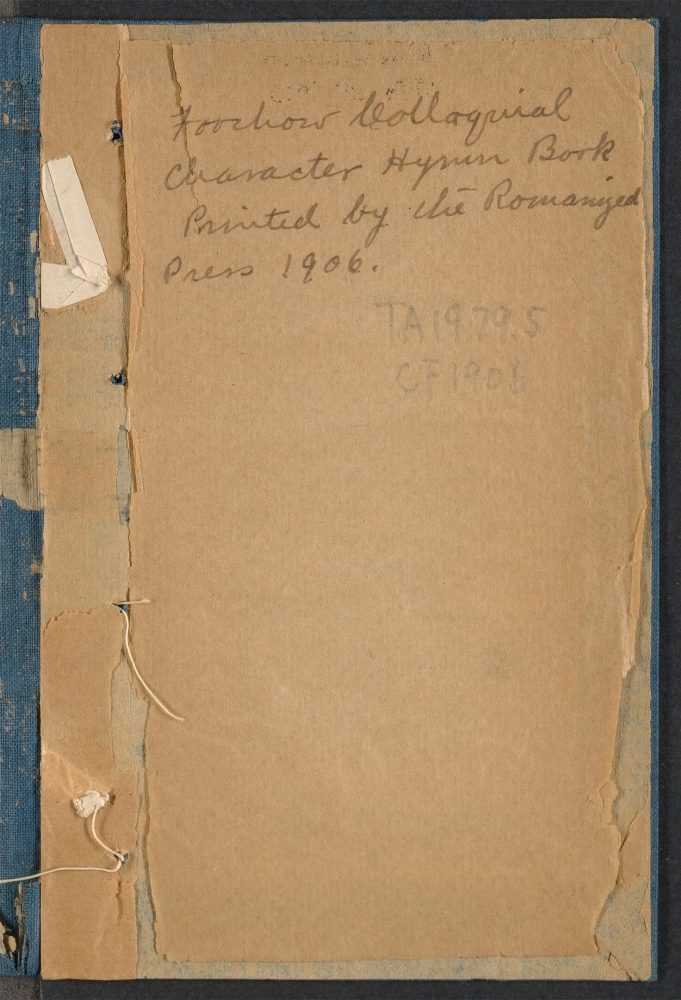 Foochow Colloquial
Character Hymn Book
Printed by the Romanized
Press 1906.
TA1979.5
CF1906